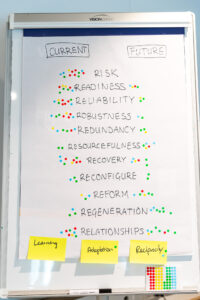 VISION
CURRENT FUTURE
RISK
READINESS
RELIABILITY
ROBUSTNESS
REDUNDANCY
RESOURCEFULNESS
RECOVERY
RECONFIGURE
REFORM
REGENERATION
RELATIONSHIPS
Learning Adaptation Reciprocity